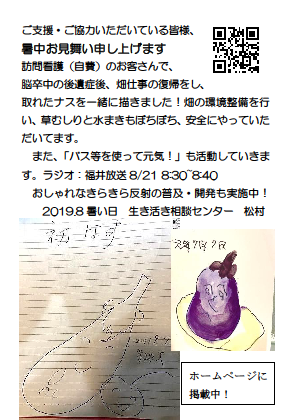 ご支援・ご協力いただいている皆様、
暑中お見舞い申し上げます
訪問看護（自費）のお客さんで、
脳卒中の後遺症後、畑仕事の復帰をし、
取れたナスを一緒に描きました！畑の環境整備を行
い、草むしりと水まきもぼちぼち、安全にやっていた
だいてます。
また、「バス等を使って元気！」も活動していきま
す。ラジオ：福井放送 8/21 8:30~8:40
おしゃれなきらきら反射の普及・開発も実施中！
2019.8 暑い日　生き活き相談センター　松村
ホームページに
掲載中！